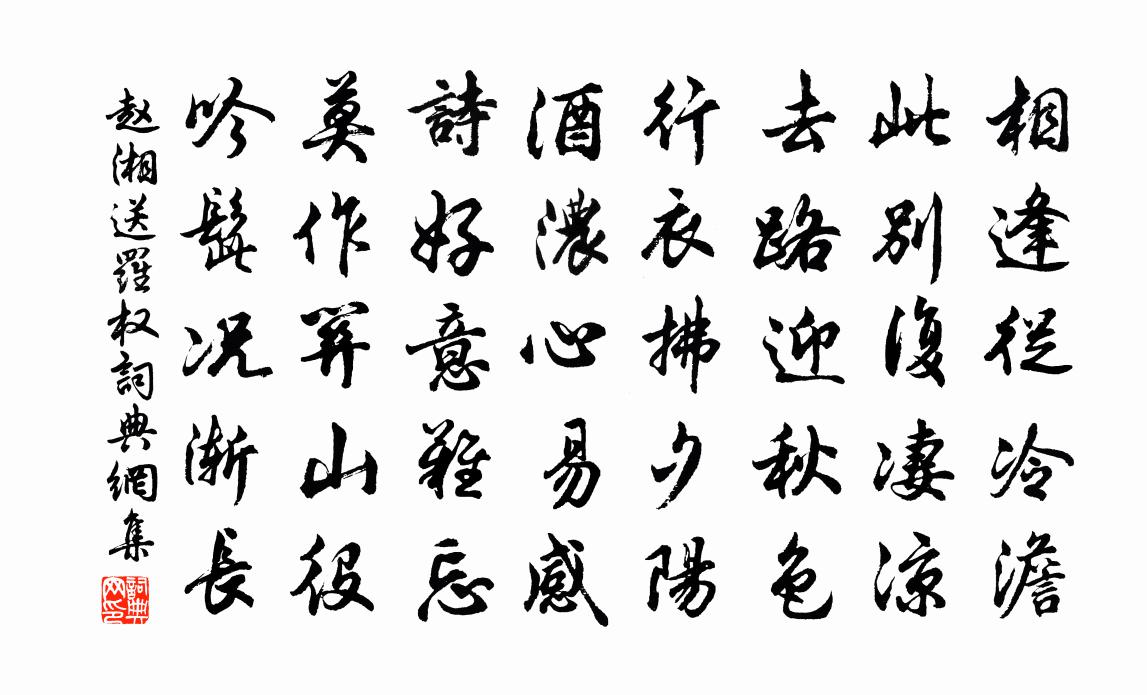 相逢從冷澹
此別復凄凉
去路迎秋色
行衣拂夕陽
酒濃心易感
詩好意難忘
莫作羿山役
吟髭况漸長
赵湘送羅权詞典網集
詞典